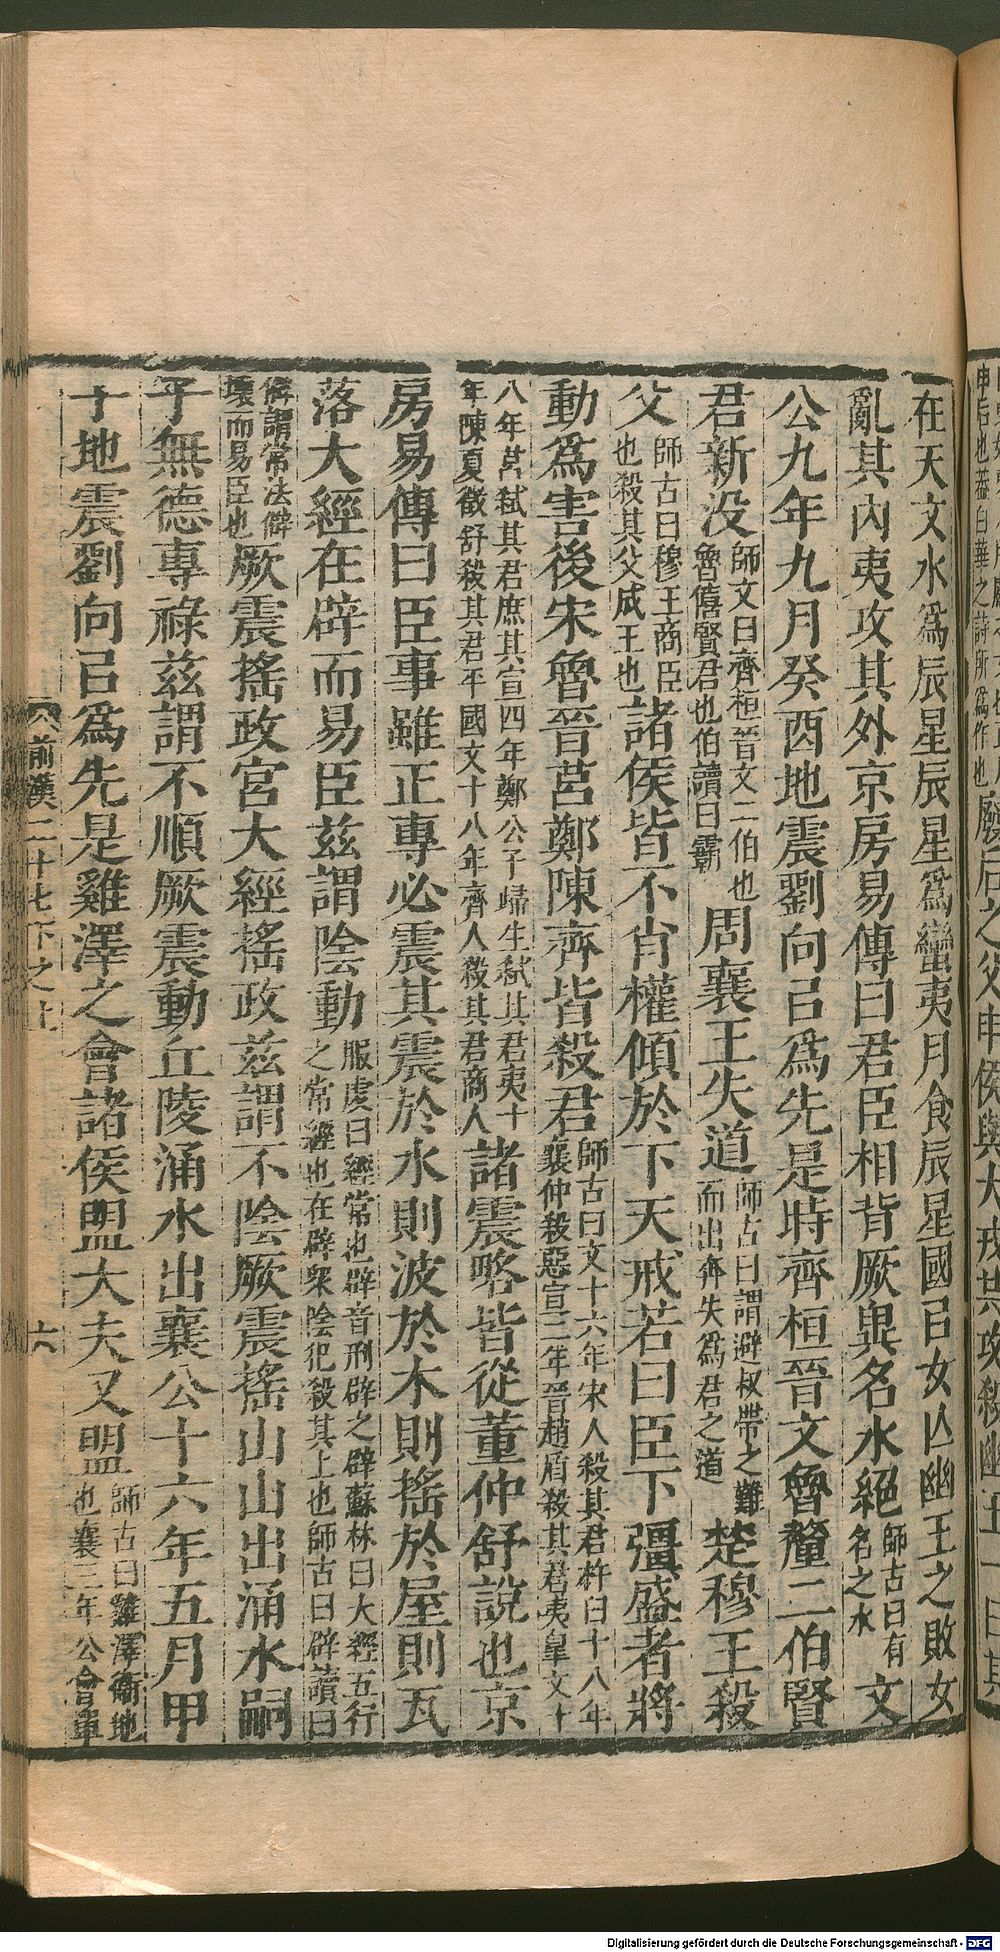 在天文水爲辰星辰星爲蠻夷月食辰星國㠯女亾幽王之敗女
亂其內夷攻其外京房易傳曰君臣相背厥異名水絕師古曰有名之水文
公九年九月癸酉地震劉向㠯爲先是時齊桓晉文魯釐二伯賢
君新没師文曰齊桓晉文二伯也魯僖賢君也伯讀曰霸周襄王失道師古曰謂避叔帶之難而出奔失爲君之道楚穆王殺
父師古曰穆王商臣也殺其父成王也諸侯皆不肖權傾於下天戒若曰臣下彊盛者將
動爲害後宋魯晉莒鄭陳齊皆殺君師古曰文十六年宋人殺其君杵臼十八年襄仲殺惡宣二年晉趙盾殺其君夷皐文十
八年莒弒其君庶其宣四年鄭公子歸生弒其君夷十年陳夏徵舒殺其君平國文十八年齊人殺其君商人諸震略皆從董仲舒說也京
房易傳曰臣事雖正專必震其震於水則波於木則搖於屋則瓦
落大經在辟而易臣兹謂陰動服虔曰經常也辟音刑辟之辟蘇林曰大經五行之常經也在辟衆陰犯殺其上也師古曰辟讀曰
僻謂常法僻壞而易臣也厥震搖政宫大經搖政兹謂不陰厥震搖山山出涌水嗣
子無德專祿兹謂不順厥震動丘陵涌水出襄公十六年五月甲
子地震劉向㠯爲先是雞澤之會諸侯盟大夫又盟師古曰雞澤衞地也襄三年公會單
前漢二十七下之上
六
申后也葢白華之詩所爲作也廢后之父申侯與犬戎共攻殺幽王一曰其
Digitalisierung gefördert durch die Deutsche Forschungsgemeinschaft - DFG